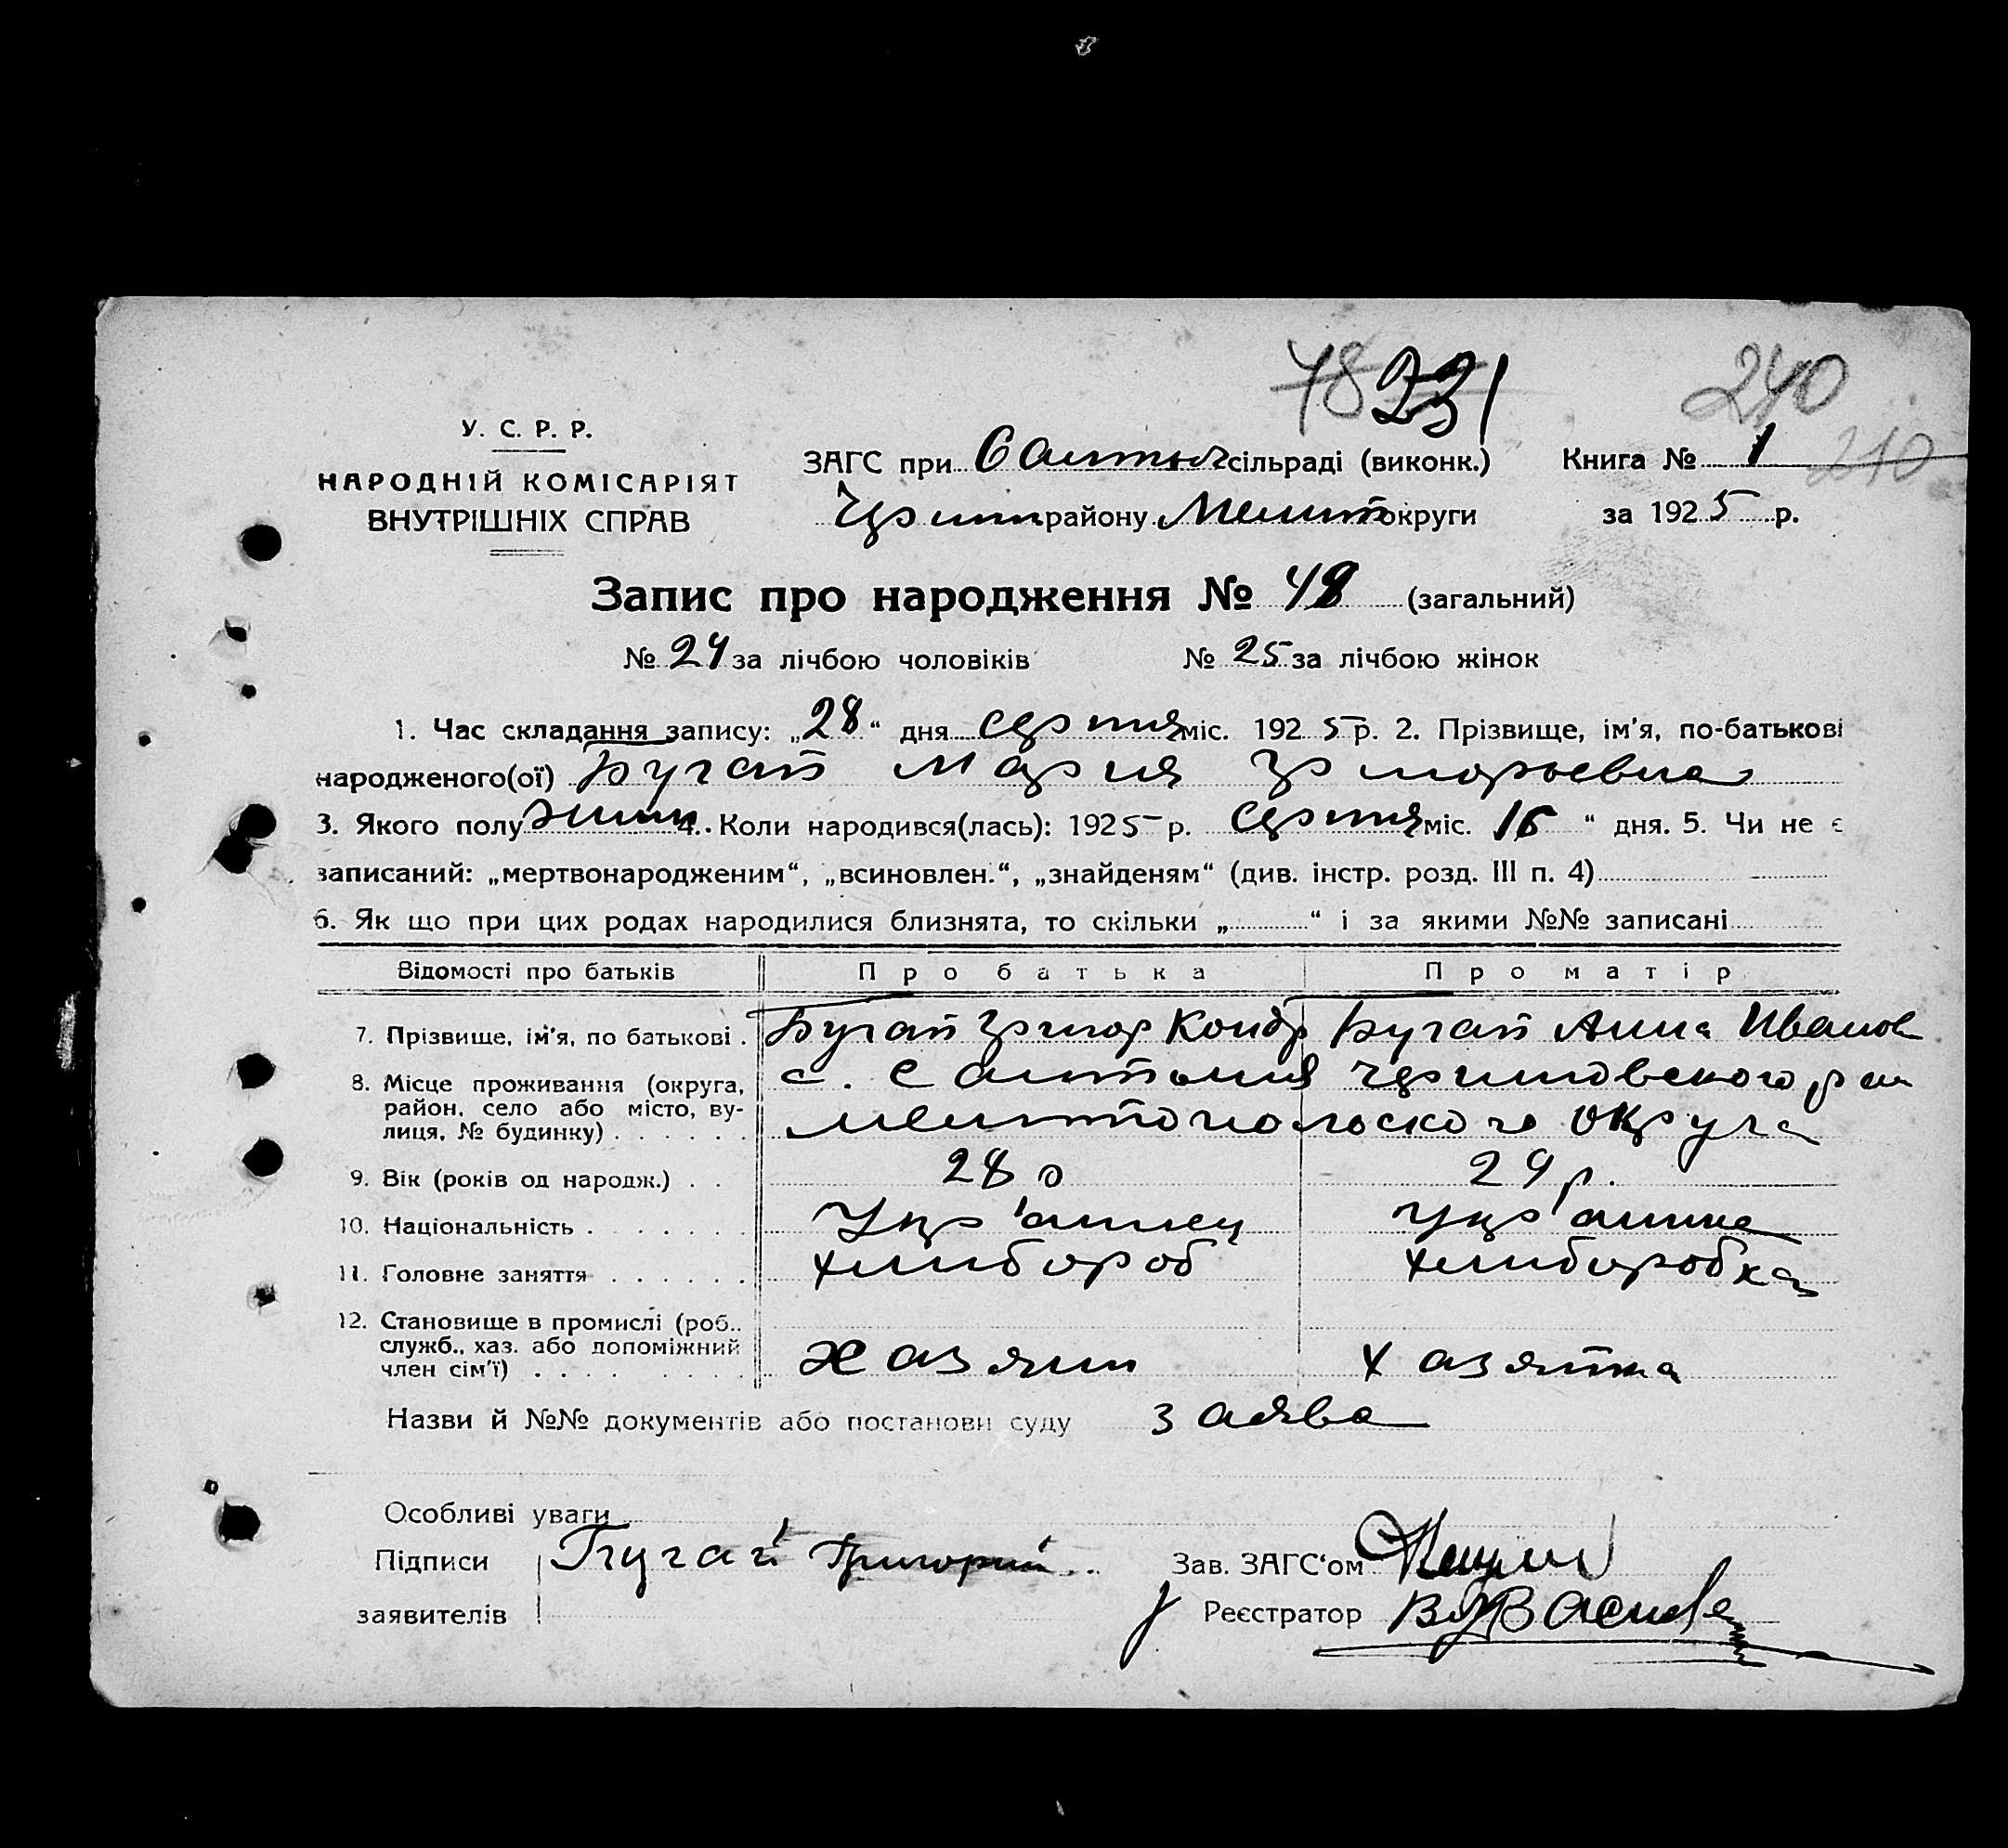 48 231 240
У. С. Р. Р.
НАРОДНІЙ КОМІСАРІЯТ
ВНУТРІШНІХ СПРАВ
ЗАГС при сільраді (виконк.) Книга № 1 210
району Мелит округи за 1925 р.
Запис про народження № 48 (загальний)
№ 24 за лічбою чоловіків № 25 за лічбою жінок
1. Час складання запису: „28“ дня серпня міс. 1925 р. 2. Прізвище, ім'я, по-батькові
народженого(ої) Бугай Мария Григорьевна
3. Якого полу жин 4. Коли народився(лась): 1925 р. серпня міс. 16 “ дня. 5. Чи не є
записаний: „мертвонародженим“, „всиновлен.“, „знайденям“ (див. інстр. розд. III п. 4)
6. Як що при цих родах народилися близнята, то скільки „ “ і за якими №№ записані
Відомості про батьків Про батька Про матір
7. Прізвище, ім'я, по батькові . Бугай Григор Кондр Бугай Анна Иванов
8. Місце проживання (округа, район, село або місто, вулиця, № будинку) с. Мелитопольского округа
9. Вік (років од народж.) . . 28 р 29 р.
10. Національність . Укр'аинец Укр'аинка
11. Головне заняття хлибороб хлиборобка
12. Становище в промислі (роб., служб., хаз. або допоміжний член сім'ї) хазяин хазяйка
Назви й №№ документів або постанови суду заява
Особливі уваги
Підписи Бугай Григорий Зав. ЗАГС‘ом
заявителів Реєстратор